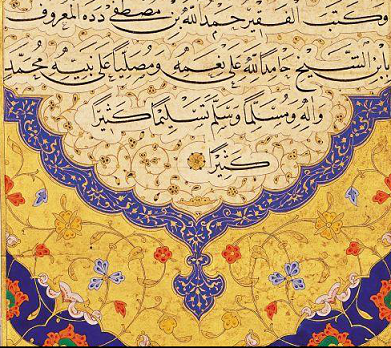 كتب الفقير حمد الله بن مصطفى دده المعروف
بابن الشيخ حامدا لله على نعمه ومصليا على نبيه محمد
وآله ومسلما وسلم تسليما كثيرا
كثيرا